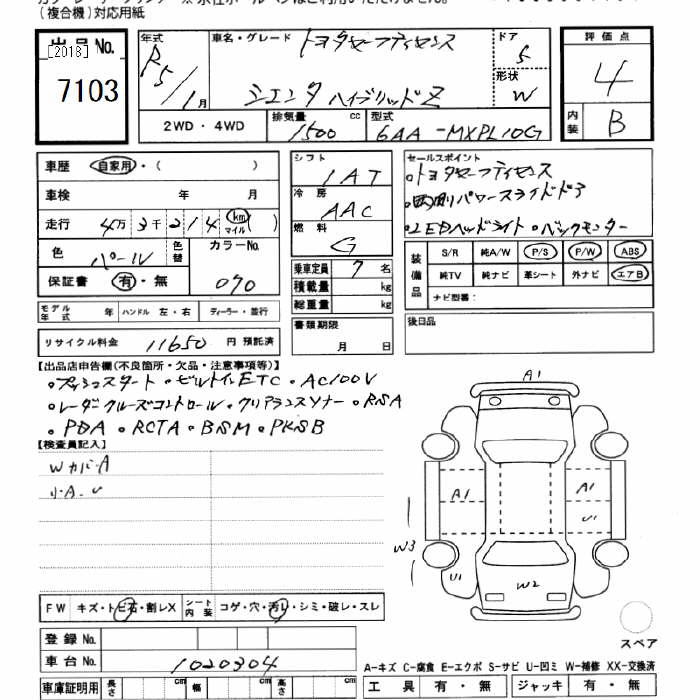 (複合機)対応用紙
出品No.
[2018]
7103
年式
R5/1月
車名・グレード
トヨタセーフティセンス
シエンタ ハイブリッドZ
ドア
5
形状
W
2WD・4WD
排気量 cc
1500
型式
6AA-MXPL10G
評価点
4
内装
B
車歴 自家用・( )
車検 年 月
走行 4万3千214(km マイル)( )
色 パール 色替
カラーNo.
070
保証書 有・無
モデル年式 年 ハンドル 左・右 ディーラー・並行
リサイクル料金 11650 円 預託済
シフト
IAT
冷房
AAC
燃料
G
乗車定員 7名
積載量 kg
総重量 kg
書類期限
月 日
セールスポイント
・トヨタセーフティセンス
・両側パワースライドドア
・LEDヘッドライト・バックモニター
装備品
S/R 純A/W P/S P/W ABS
純TV 純ナビ 革シート 外ナビ エアB
ナビ型番:
後日品
【出品店申告欄(不良箇所・欠品・注意事項等)】
・プッシュスタート・ビルトインETC・AC100V
・レーダークルーズコントロール・クリアランスソナー・RSA
・PDA・RCTA・BSM・PKSB
【検査員記入】
WカバーA
小A.U
A1
A1
A1
U1
W3
U1
W2
スペア
FW キズ・トビ石・割レX シート内装 コゲ・穴・汚レ・シミ・破レ・スレ
登録No.
車台No. 1020304
車庫証明用 長さ cm 幅 cm 高さ cm
A-キズ C-腐食 E-エクボ S-サビ U-凹ミ W-補修 XX-交換済
工具 有・無 ジャッキ 有・無